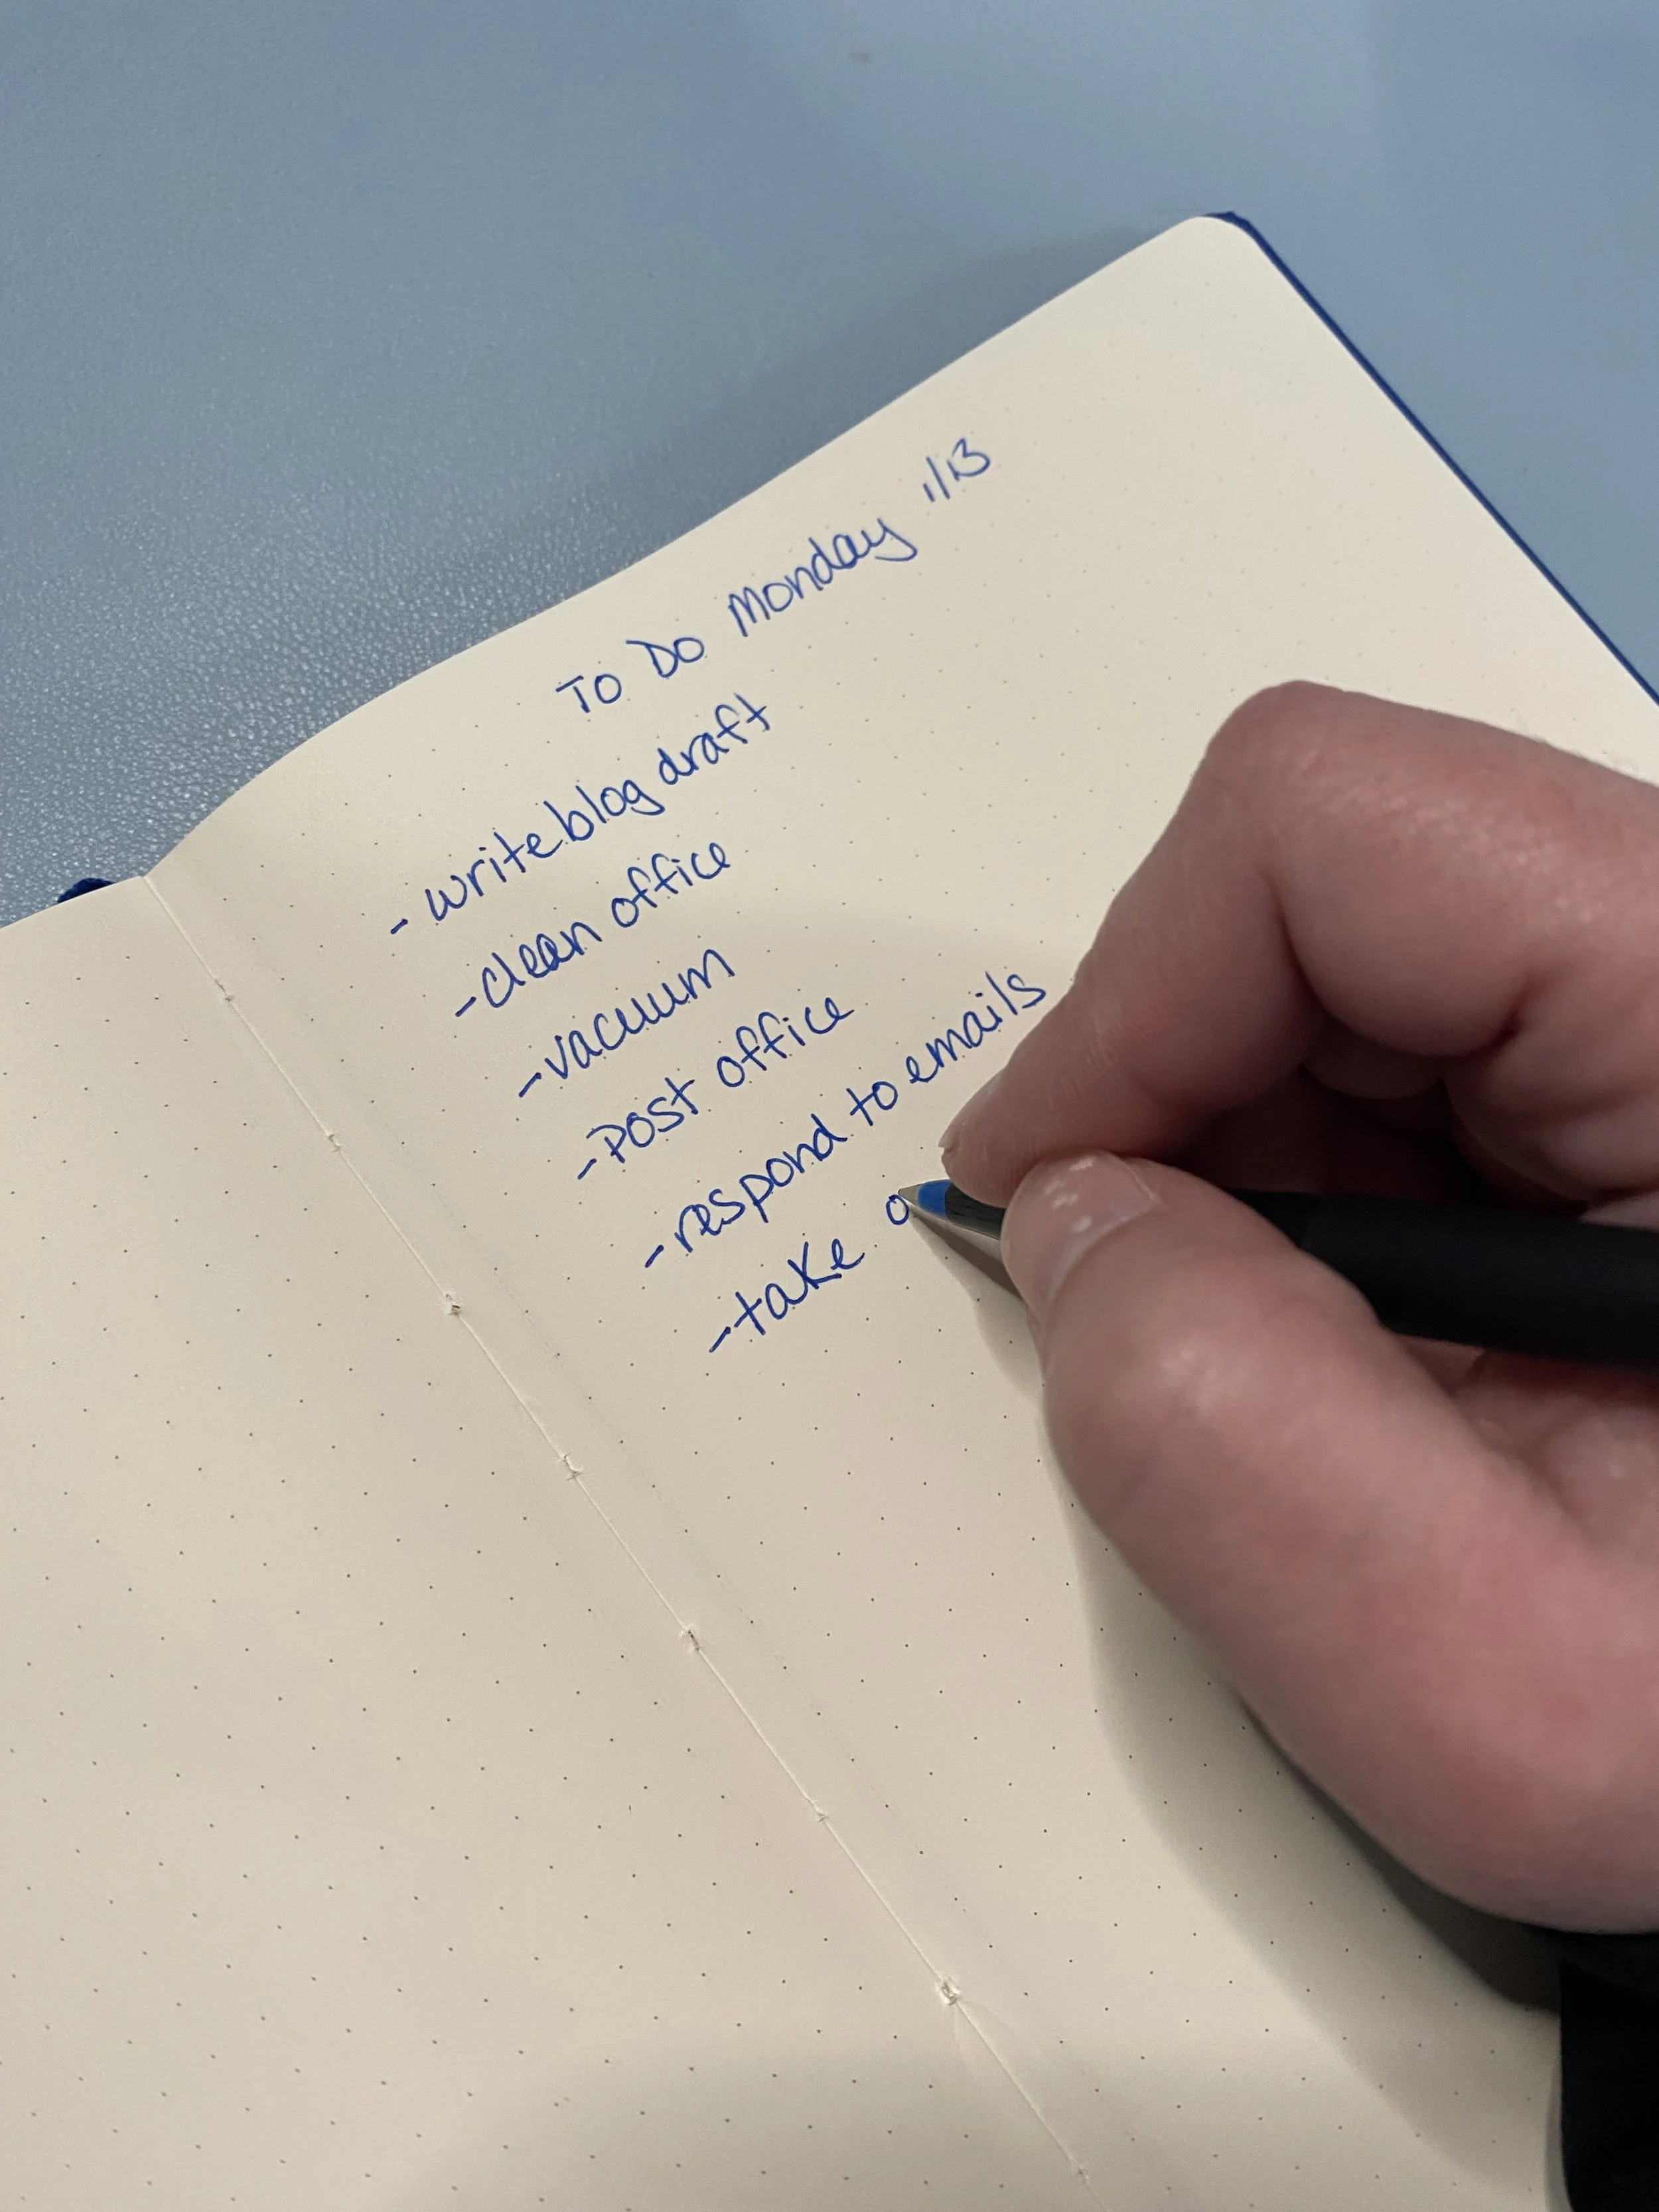 To Do Monday 1/13
- write blog draft
- clean office
- vacuum
- Post office
- respond to emails
- take o